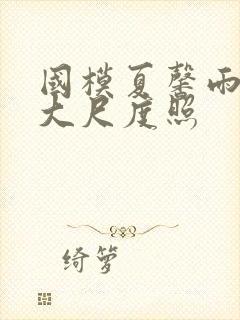 國模夏馨雨
大尺度照
绮萝